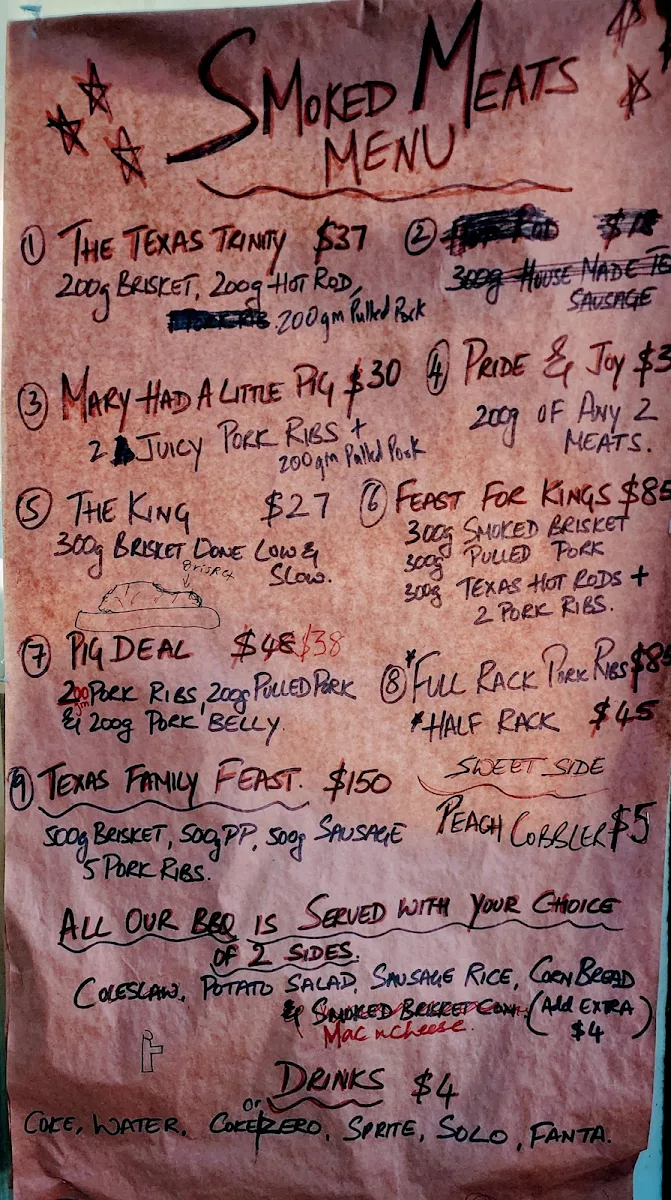 SMOKED MEATS
MENU
① THE TEXAS TRINITY $37
200g BRISKET, 200g HOT ROD,
200gm Pulled Pork
②
300g HOUSE MADE
SAUSAGE
③ MARY HAD A LITTLE PIG $30
2 JUICY PORK RIBS +
200gm Pulled Pork
④ PRIDE & JOY $3
200g OF ANY 2
MEATS.
⑤ THE KING $27
300g BRISKET DONE LOW &
SLOW.
Brisket
⑥ FEAST FOR KINGS $85
300g SMOKED BRISKET
300g PULLED PORK
300g TEXAS HOT RODS +
2 PORK RIBS.
⑦ PIG DEAL $48 $38
200gm PORK RIBS, 200g PULLED PORK
& 200g PORK BELLY.
⑧ *FULL RACK PORK RIBS $85
*HALF RACK $45
⑨ TEXAS FAMILY FEAST. $150
500g BRISKET, 500g PP, 500g SAUSAGE
5 PORK RIBS.
SWEET SIDE
PEACH COBBLER $5
ALL OUR BBQ IS SERVED WITH YOUR CHOICE
OF 2 SIDES.
COLESLAW, POTATO SALAD, SAUSAGE RICE, CORN BREAD
& SMOKED BRISKET (Add EXTRA
Mac n cheese. $4)
DRINKS $4
COKE, WATER, COKE ZERO, SPRITE, SOLO, FANTA.